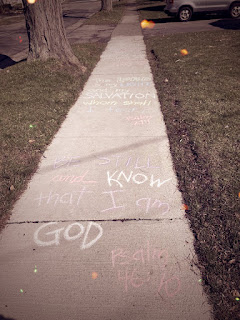 SALVATION
whom shall
Be STILL
and KNOW
that I am
GOD
Psalm
46:10